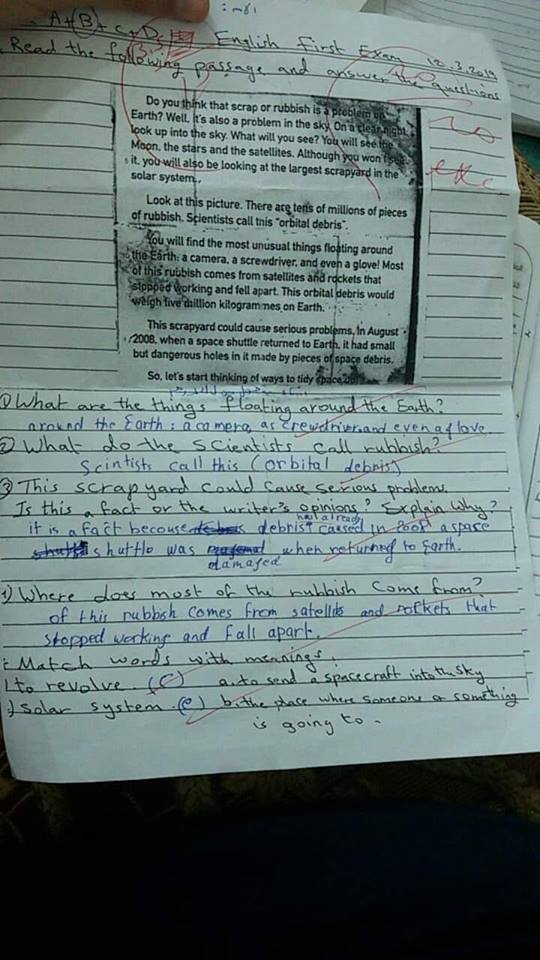 A+(B)+C+D English First Exam 12.3.2019
Read the following passage and answer the questions
Do you think that scrap or rubbish is a problem on
Earth? Well, it's also a problem in the sky. On a clear night,
look up into the sky. What will you see? You will see the
Moon, the stars and the satellites. Although you won't see
it, you will also be looking at the largest scrapyard in the
solar system.
Look at this picture. There are tens of millions of pieces
of rubbish. Scientists call this "orbital debris".
You will find the most unusual things floating around
the Earth: a camera, a screwdriver, and even a glove! Most
of this rubbish comes from satellites and rockets that
stopped working and fell apart. This orbital debris would
weigh five million kilogrammes on Earth.
This scrapyard could cause serious problems. In August
2008, when a space shuttle returned to Earth, it had small
but dangerous holes in it made by pieces of space debris.
So, let's start thinking of ways to tidy space up!
① What are the things floating around the Earth?
around the Earth: a camera, a screwdriver and even a glove.
② What do the scientists call rubbish?
Scintists call this (orbital debris)
③ This scrapyard could cause serious problems.
Is this a fact or the writer's opinions? Explain why?
it is a fact becouse debris had already caused in 2008 a space
shuttle was damaged when returned to Earth.
4) Where does most of the rubbish come from?
of this rubbish comes from satellits and rockets that
stopped working and fall apart.
: Match words with meanings.
1) to revolve. (C) a. to send a spacecraft into the sky
) Solar system. (e) b. the place where someone or something
is going to.